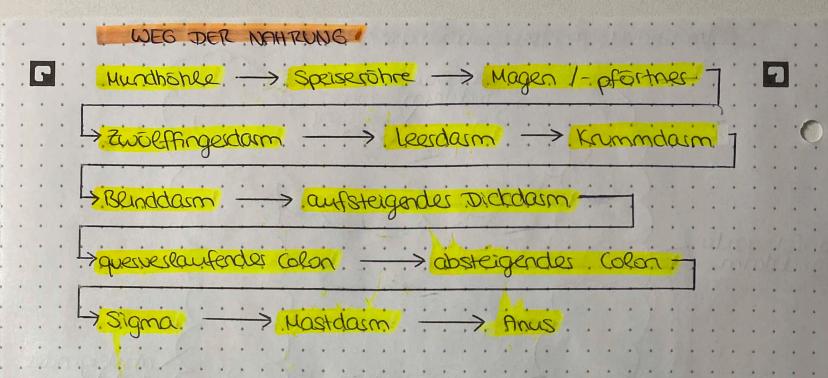 WEG DER NAHRUNG
Mundhöhle → Speiseröhre → Magen /-pförtner
→ Zwölffingerdarm → Leerdarm → Krummdarm
→ Blinddarm → aufsteigendes Dickdarm
→ querverlaufendes Colon → absteigendes Colon
→ Sigma → Mastdarm → Anus